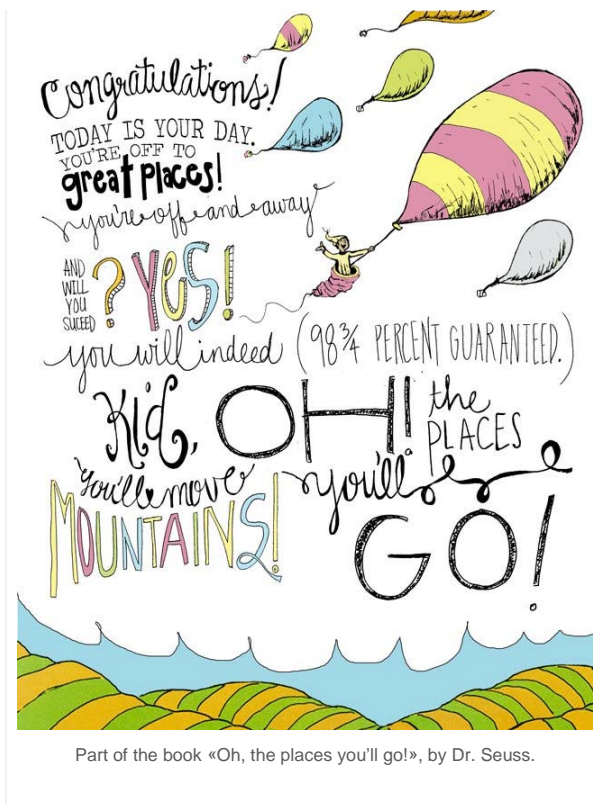 Congratulations!
TODAY IS YOUR DAY.
YOU'RE OFF TO
great places!
you're off and away
AND
WILL
YOU
SUCEED
? YES!
you will indeed (98 3/4 PERCENT GUARANTEED.)
Kid,
you'll move
MOUNTAINS!
OH!
the
PLACES
you'll
GO!
Part of the book «Oh, the places you'll go!», by Dr. Seuss.